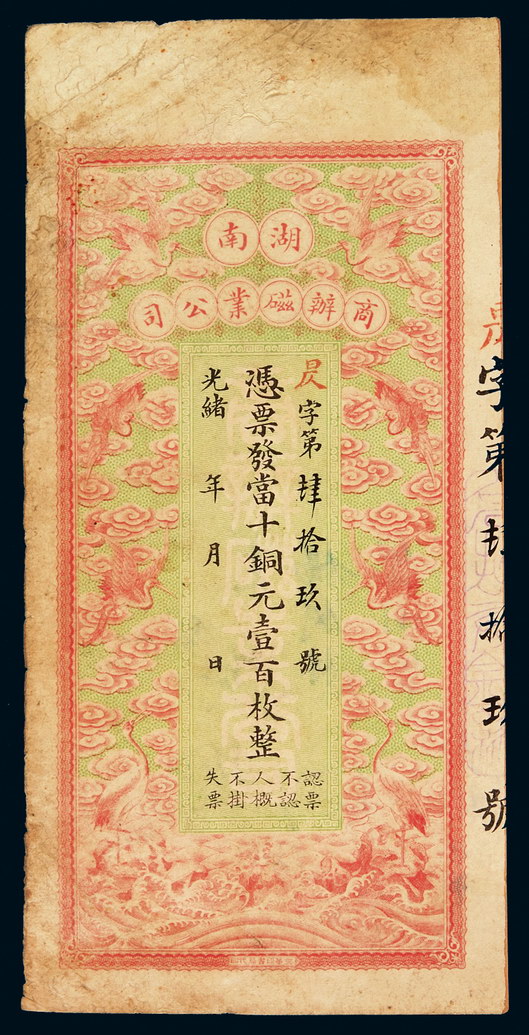 湖南
商辦磁業公司
昃字第肆拾玖號
憑票發當十銅元壹百枚整
光緒 年 月 日
認票不認人概不掛失票
昃字第肆拾玖號